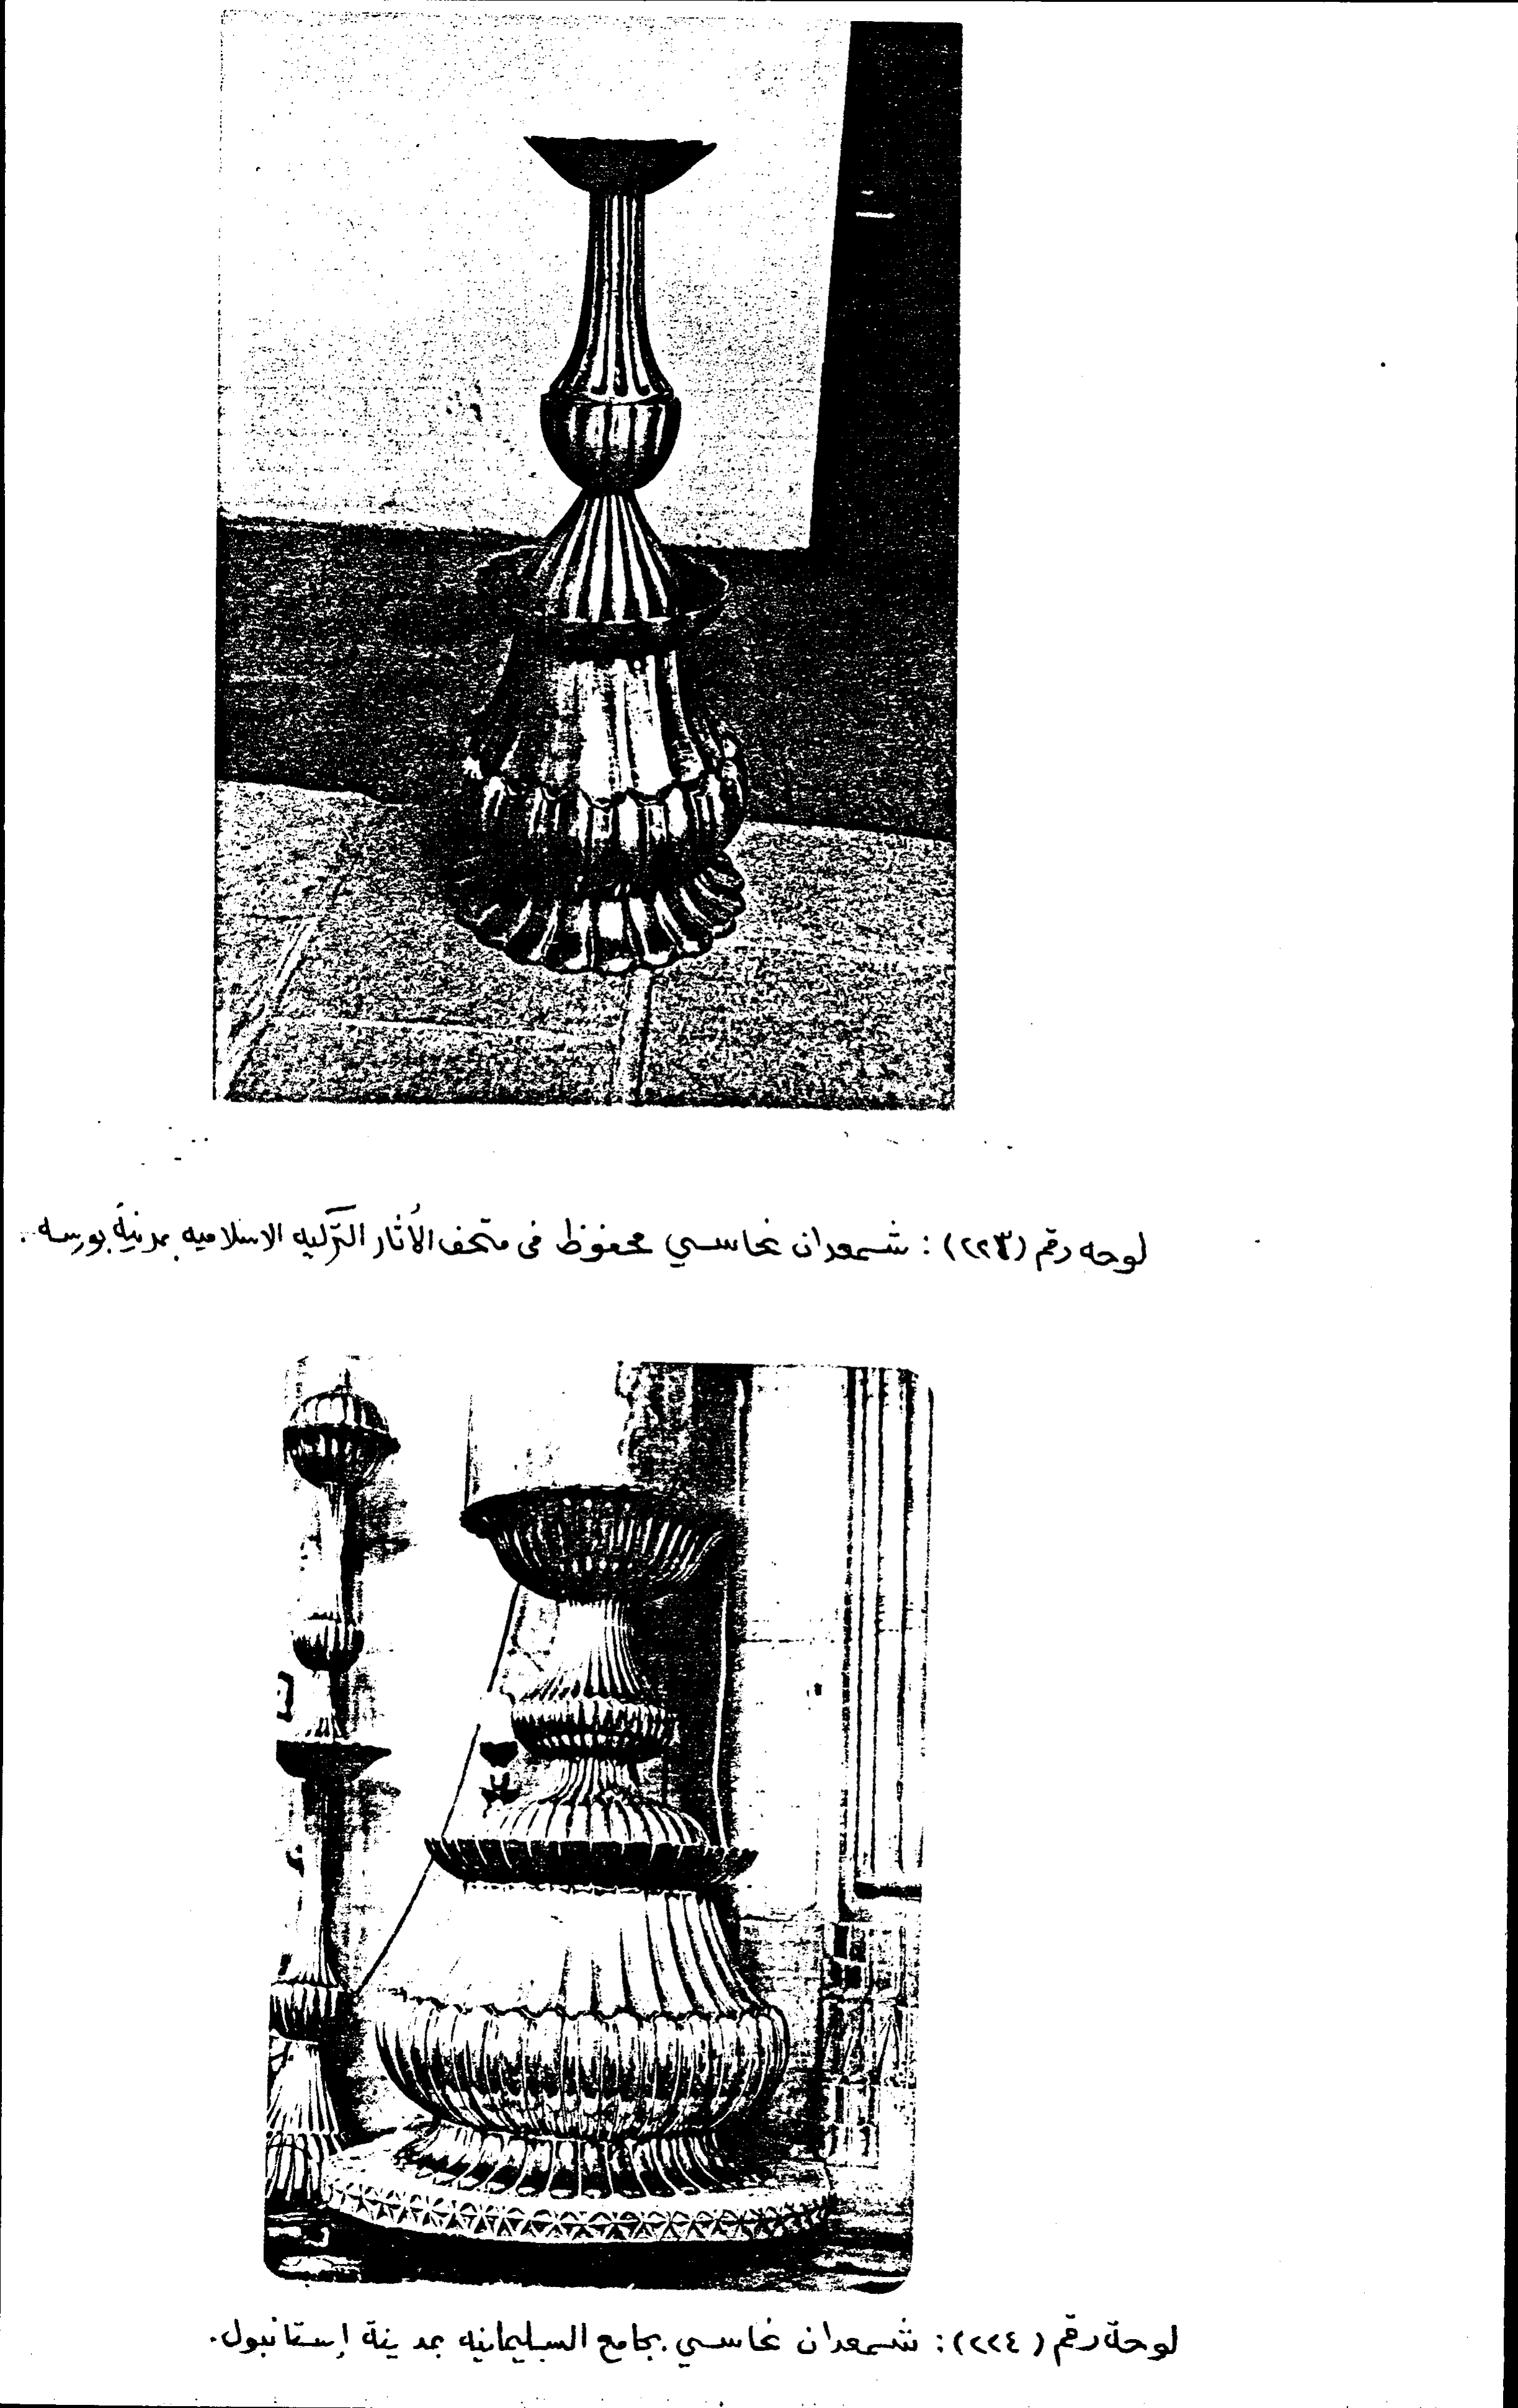 لوحه رقم (٢٢٣) : شمعدان نحاسي محفوظ فى متحف الأثار التركيه الاسلاميه بمدينة بورسه .
لوحة رقم (٢٢٤) : شمعدان نحاسي بجامع السليمانيه بمدينة إستانبول .